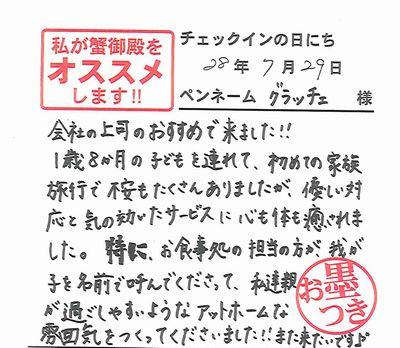 私が蟹御殿を
オススメ
します!!
チェックインの日にち
28年7月29日
ペンネーム グラッチェ 様
会社の上司のおすすめで来ました!!
1歳8か月の子どもを連れて、初めての家族
旅行で不安もたくさんありましたが、優しい対
応と気の効いたサービスに心も体も癒されま
した。特に、お食事処の担当の方が、我が
子を名前で呼んでくださって、私達親
が過ごしやすいようなアットホームな
雰囲気をつくってくださいました!!また来たいです♪
お墨
つき